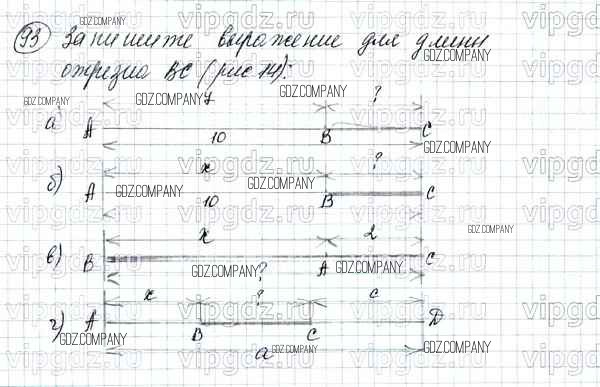 93 Запишите выражение для длины
отрезка BC (рис 14):
а) A 7 B ? C
10
б) A x B ? C
10
в) B x A 2 C
?
г) A x B ? C c D
a
vipgdz.ru
GDZ.COMPANY